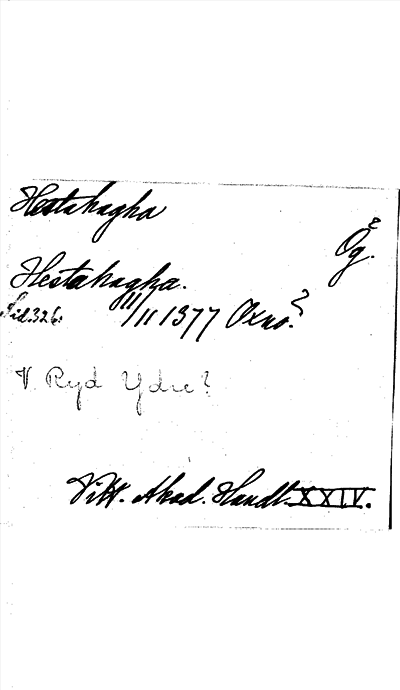 Hestahagha
Ög. ?
Hestahagha.
Sid. 326. 11/11 1377 Oxno. ?
V. Ryd Ydre?
Vitt. Akad. Handl. XXIV.